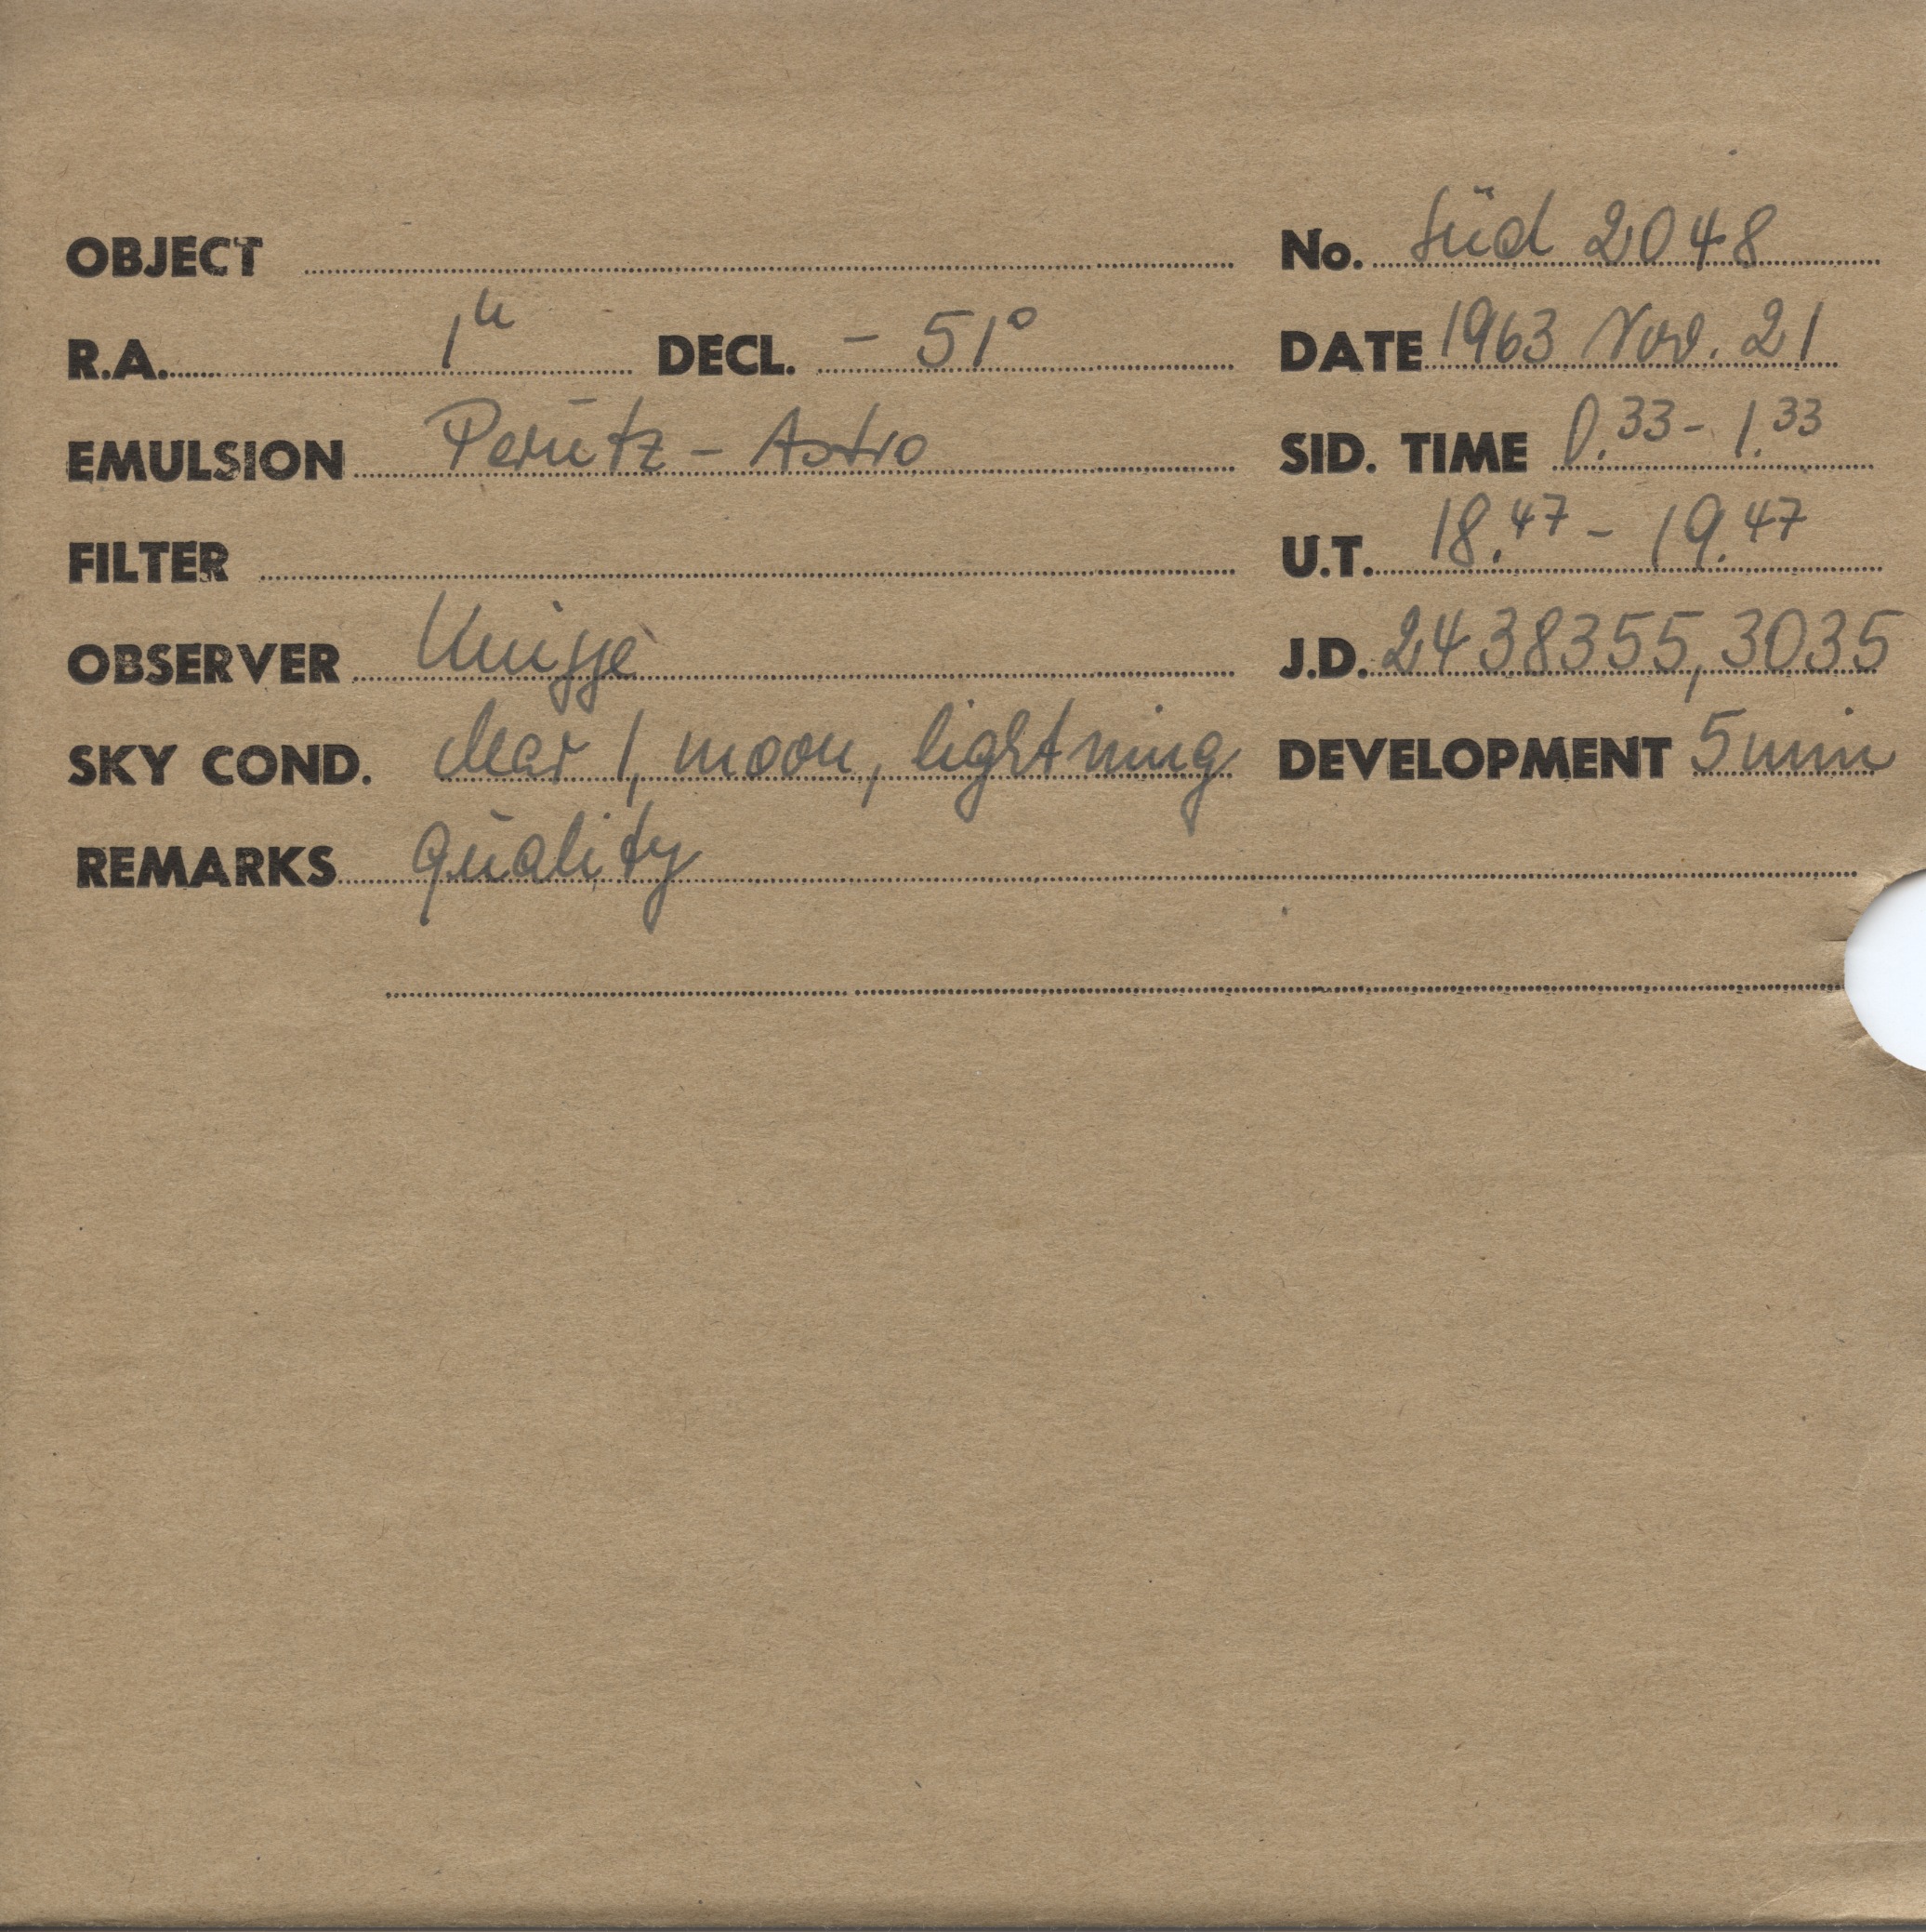 OBJECT No. Süd 2048
R.A. 1h DECL. - 51° DATE 1963 Nov. 21
EMULSION Perutz - Astro SID. TIME 0.33 - 1.33
FILTER U.T. 18.47 - 19.47
OBSERVER Knigge J.D. 2438355,3035
SKY COND. clear 1, moon, lightning DEVELOPMENT 5 min
REMARKS quality